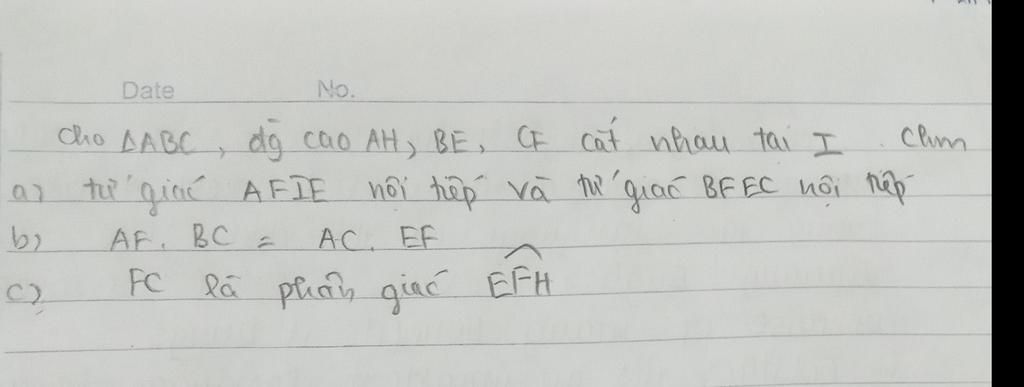 Date No.
Cho ΔABC, đg cao AH, BE, CF cắt nhau tại I. Chm
a) tứ giác AFIE nội tiếp và tứ giác BFEC nội tiếp
b) AF. BC = AC. EF
c) FC là phân giác \widehat{EFH}